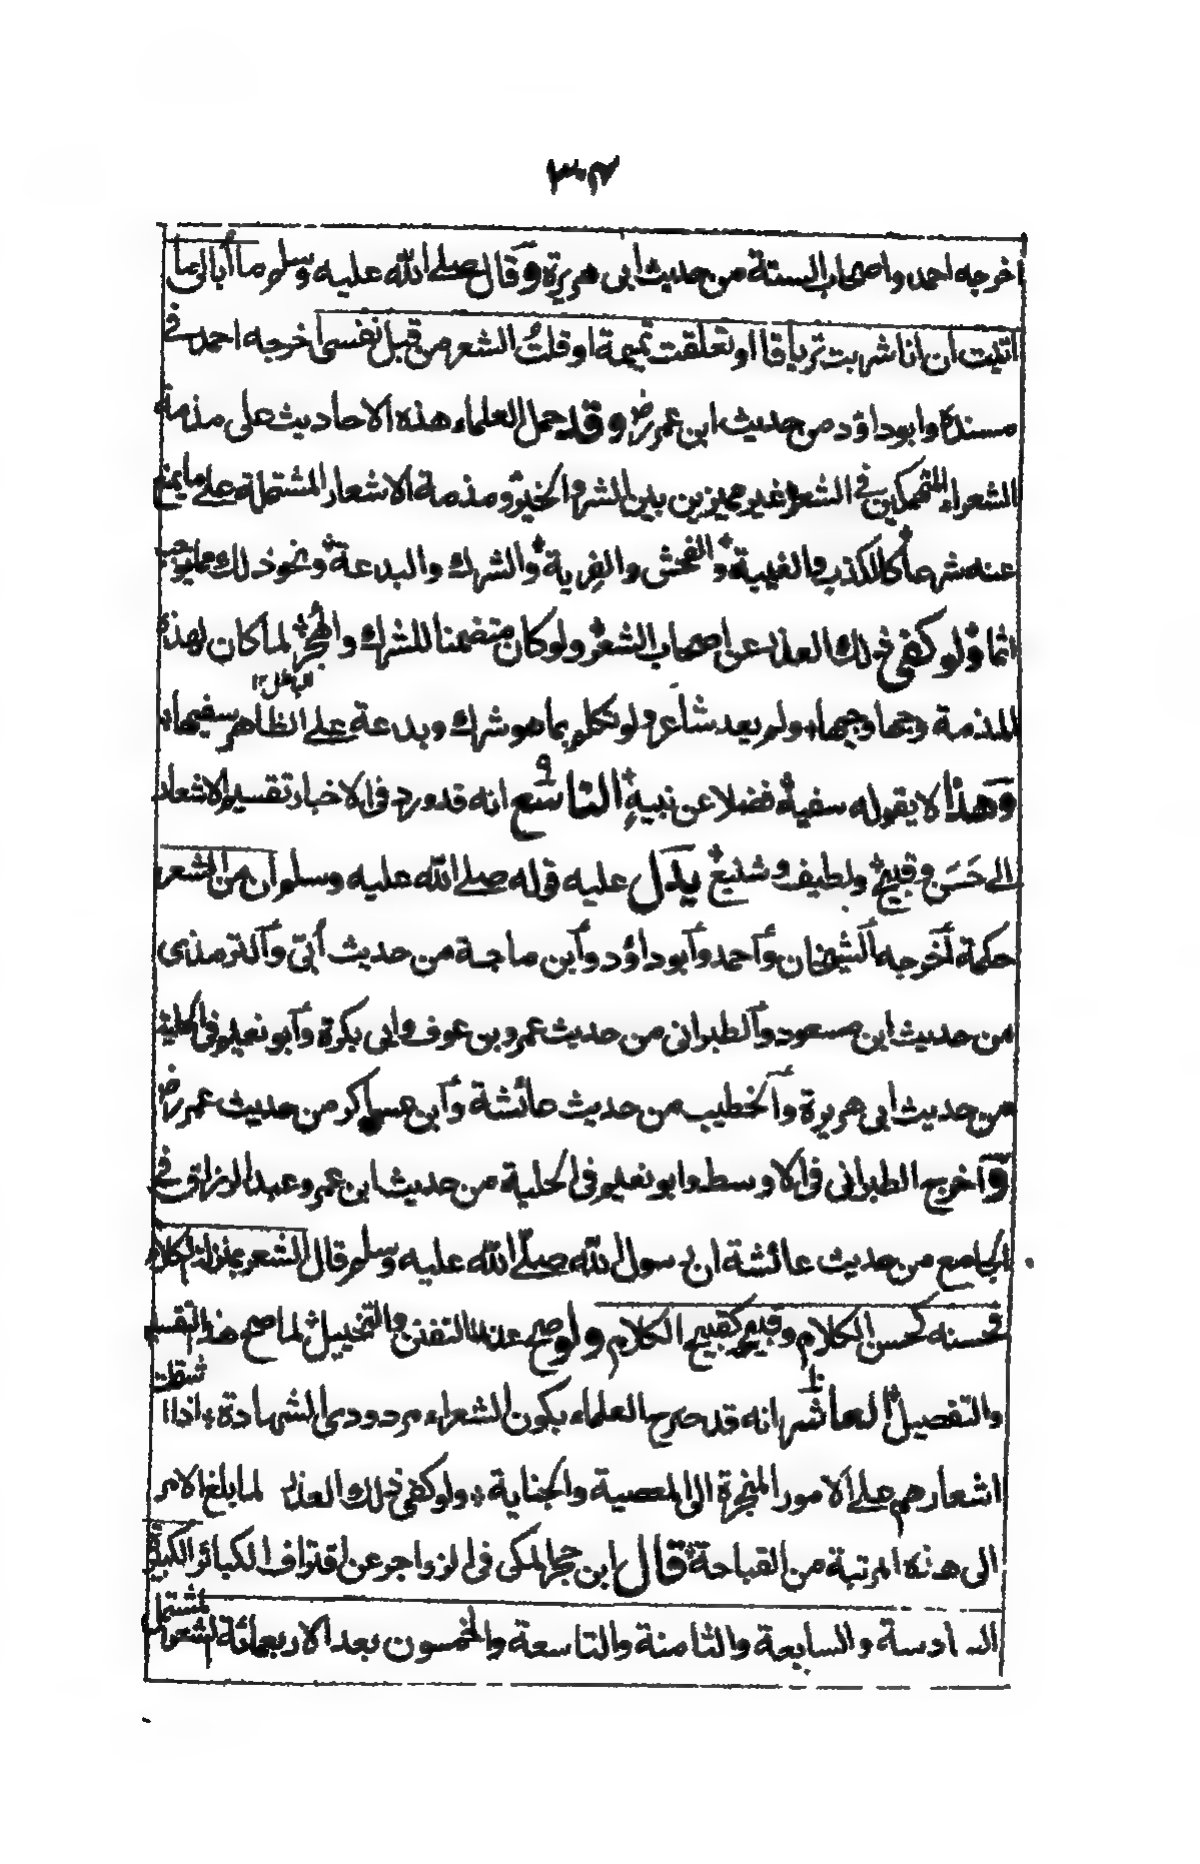 ٣٠٤
اخرجه احمد واصحاب الستة من حديث ابى هريرة وقال صلے الله عليه وسلم ما ابالى ما
اتيت ان انا شربت ترياقا او تعلقت تميمة او قلتُ الشعر من قبل نفسى اخرجه احمد فے
مسنده وابو داؤد من حديث ابن عمر رض وقد حمل العلماء هذه الاحاديث على مذمة
الشعراء المنهمكين فے الشعر غير مميزين بين الشر والخير ومذمة الاشعار المشتملة علے ما يمنع
عنه شرعا كالكذب والغيبة والفحش والفِرية والشرك والبدعة ونحو ذلك مما يوجب
اثما ولو كفى ذلك العذر عن اصحاب الشعر ولو كان متضمنا للشرك والهُجر لما كان لهذه
المذمة وجها وجيها ولم يعد شاعر ولو تكلم بما هو شرك وبدعة علے الظاهر سفيها
وهذا لا يقوله سفيه فضلا عن نبيهٍ التاسع ٩ انه قد ورد فى الاخبار تقسيم الاشعار
الے حَسَن وقبيح ولطيف وشنيع يدل عليه قوله صلے الله عليه وسلم ان من الشعر
حكمة اخرجه الشيخان وأحمد وأبو داؤد وأبن ماجة من حديث أبىّ وألترمذى
من حديث ابن مسعود وألطبرانى من حديث عمرو بن عوف وابى بكرة وأبو نعيم فى الحلية
من حديث ابى هريرة وألخطيب من حديث عائشة وأبن عساكر من حديث عمر رض
وأخرج الطبرانى فى الاوسط وابو نعيم فى الحلية من حديث ابن عمر وعبد الرزاق فے
الجامع من حديث عائشة ان رسول الله صلّے الله عليه وسلم قال الشعر بمنزلة الكلام
فحسنه كحسن الكلام وقبيحه كقبيح الكلام ولو صح عندنا التفنن والتخييل لما صح هذا التقسيم
والتفصيل العاشر ١٠ انه قد صرح العلماء بكون الشعراء مردودى الشهادة اذا اشتملت
اشعارهم علے الامور المنجرة الى المعصية والجناية ولو كفى ذلك العذر لما بلغ الامر
الى هذه المرتبة من القباحة قال ابن حجر المكى فى الزواجر عن اقتراف الكبائر الكبيرة
السادسة والسابعة والثامنة والتاسعة والخمسون بعد الاربعمائة الشعر المشتمل